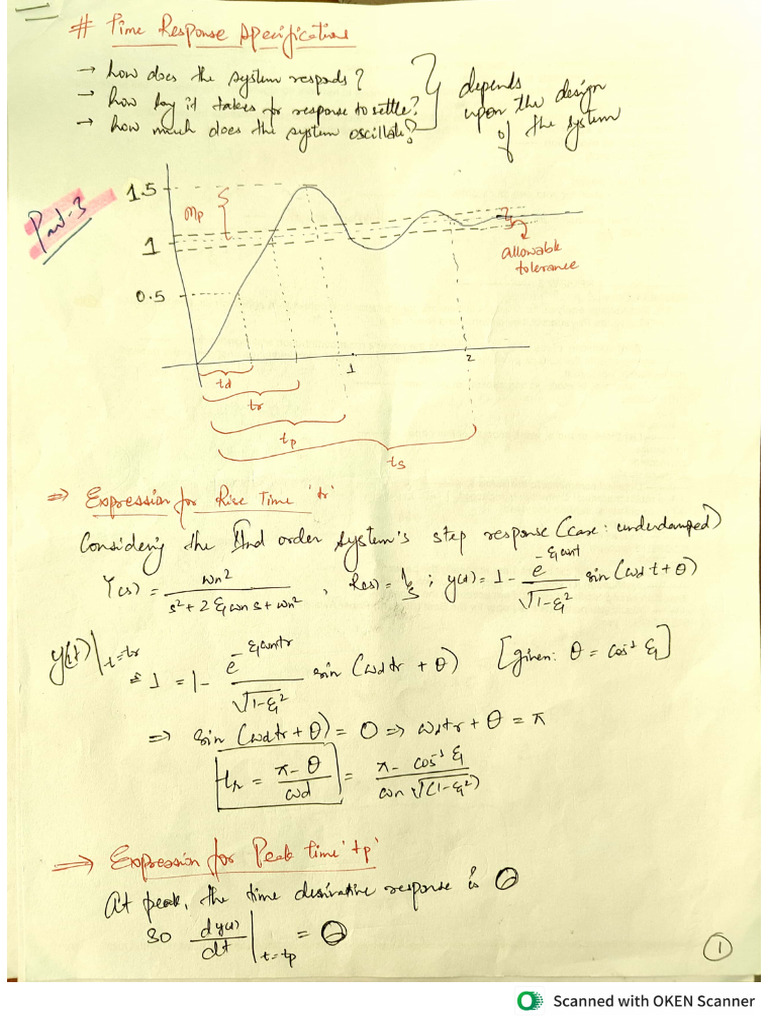 # Time Response Specifications
→ how does the system responds?
→ how long it takes for response to settle?
→ how much does the system oscillate?
depends
upon the design
of the system
Part-3
1.5
Mp
1
0.5
allowable
tolerance
1
2
td
tr
tp
ts
⇒ Expression for Rise Time 'tr'
Considering the IInd order system's step response (case: underdamped)
Y(s) = ωn² / (s² + 2ξωn s + ωn²) , R(s) = 1/s ; y(t) = 1 - e^(-ξωnt) / √(1-ξ²) sin(ωd t + θ)
y(t)|t=tr = 1 = 1 - e^(-ξωntr) / √(1-ξ²) sin(ωdtr + θ) [given: θ = cos⁻¹ ξ]
⇒ sin(ωdtr + θ) = 0 ⇒ ωdtr + θ = π
tr = (π - θ) / ωd = (π - cos⁻¹ ξ) / (ωn √(1-ξ²))
⇒ Expression for Peak time 'tp'
At peak, the time derivative response is 0
so dy(t)/dt |t=tp = 0
1
Scanned with OKEN Scanner